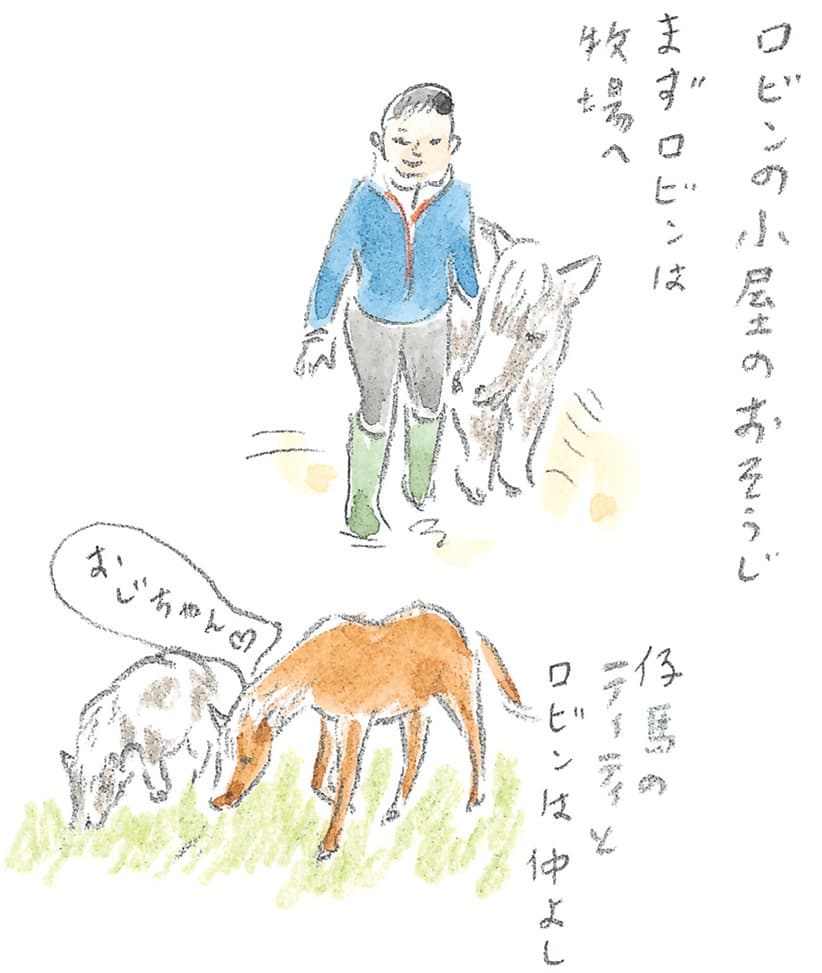 ロビンの小屋のおそうじ
まずロビンは
牧場へ
おじちゃん♡
仔馬の
ティーティと
ロビンは仲よし